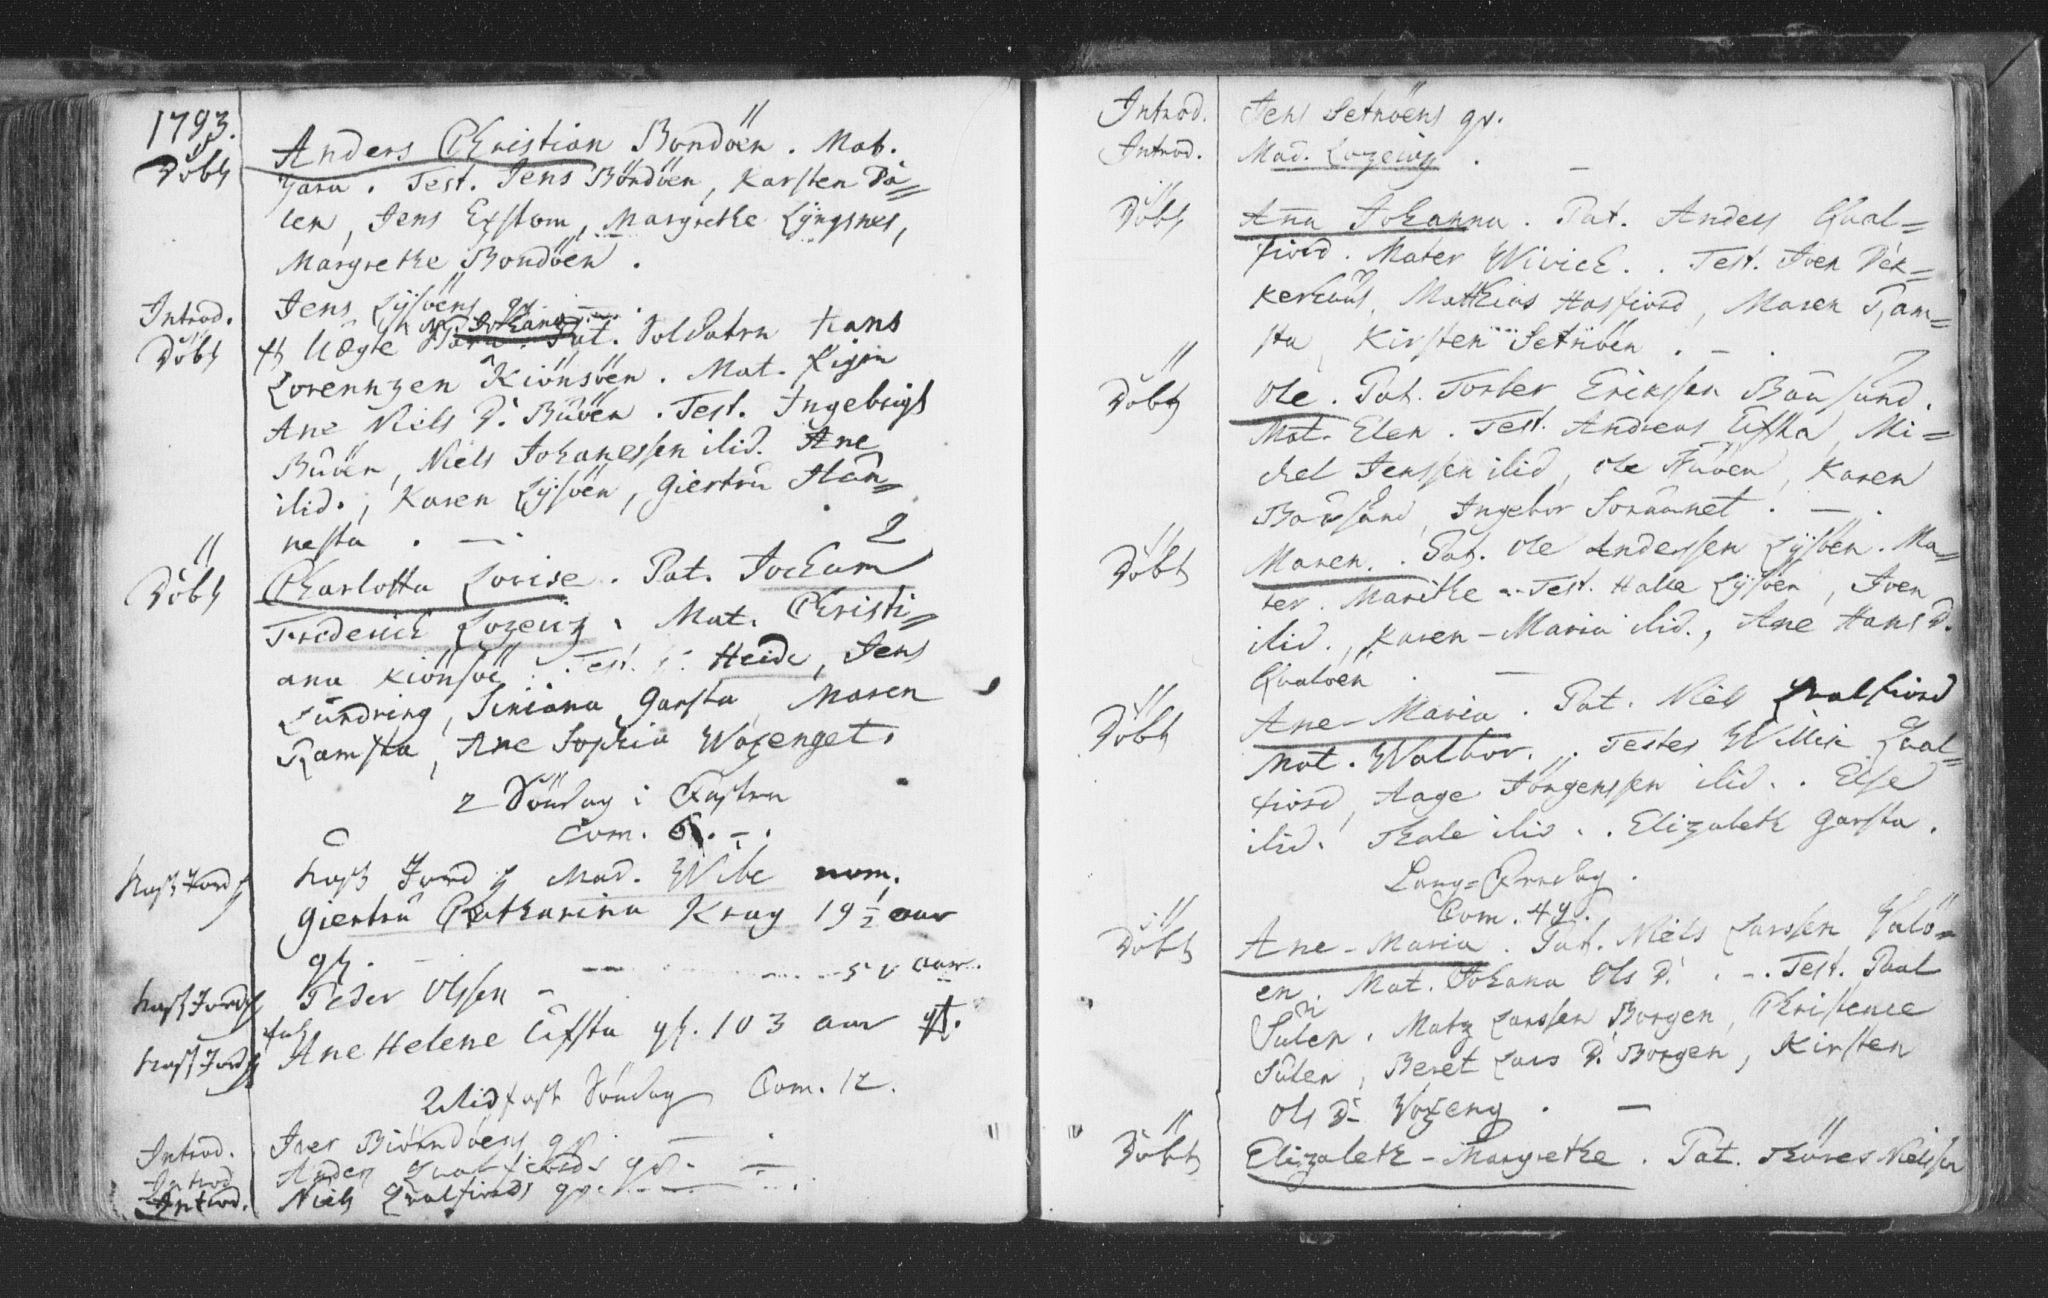 1793.
Döbt Anders Christian Bondöen. Mat.
Test. Jens Bondöen, Karsten Da=
len, Jens Exstom, Margrethe Lÿngsnes,
Margrethe Bondöen.
Introd. Jens Lÿsöens qv.
Döbt Uægte Pat. Soldaten Hans
Lorentzen Kiönsöen. Mat. Pigen
Ane Niels D. Buöen. Test. Ingebrigt
Buöen, Niels Johanessen ilid. Ane
ilid., Karen Lÿsöen, Giertru Stan=
nesta. —
Döbt Charlotta Lovise. Pat. Jochum
Frederich Lozewiz. Mat. Christi=
ana Kiönsöe. Test. Heide, Jens
Lundring, Siniana Garsta, Maren
Ramsta, Ane Sophia Woxenget.
2 Söndag i Fasten
Com. 6. —.
Kast Jord p Mad. Wibe nom.
Giertru Catharina Krag 19 1/2 aar
gl.
Kast Jord p Peder Olssen — — aar.
Kast Jord p Ane Helene Ufsta gl. 103 aar gl.
Midfast Söndag Com. 12.
Introd. Iver Biörndöens qv. —
Introd. Anders Qvalfiords qv. —
Introd. Niels Qvalfiords qv. —
Introd. Jens Setnöens qv.
Introd. Mad. Lozewiz. —
Döbt Ana Johanna. Pat. Anders Qval=
fiord. Mater Wivick. Test. Iven Dek=
kerhuus, Mathias Hasfiord, Maren Ram=
sta, Kirsten Setnöen. —.
Döbt Ole. Pat. Torber Erikssen Bausund.
Mat. Elen. Test. Andreas Ufsta, Mi=
chel Jenssen ilid, Ole Füöen, Karen
Bausund, Ingebor Soraunet. —.
Döbt Maren. Pat. Ole Anderssen Lÿsöen. Ma=
ter. Marithe. Test. Halle Lÿsöen, Iven
ilid., Karen-Maria ilid., Ane Hans D.
Qvalöen. —
Döbt Ane-Maria. Pat. Niels Qvalfiord
Mat. Walbor. Testes Willik Qval=
fiord, Aage Jörgenssen ilid. Else
ilid. Thale ilid. Elizabeth Garsta.
Lang=Fredag.
Com. 49.
Döbt Ane-Maria. Pat. Niels Larssen Valö=
en. Mat. Johana Ols D. —. Test. Paal
Sulen. Matz Larssen Borgen, Christence
Sulen, Beret Lars D. Borgen, Kirsten
Ols D. Woxeng. —
Döbt Elizabeth-Margrethe. Pat. Thöres Nielssen